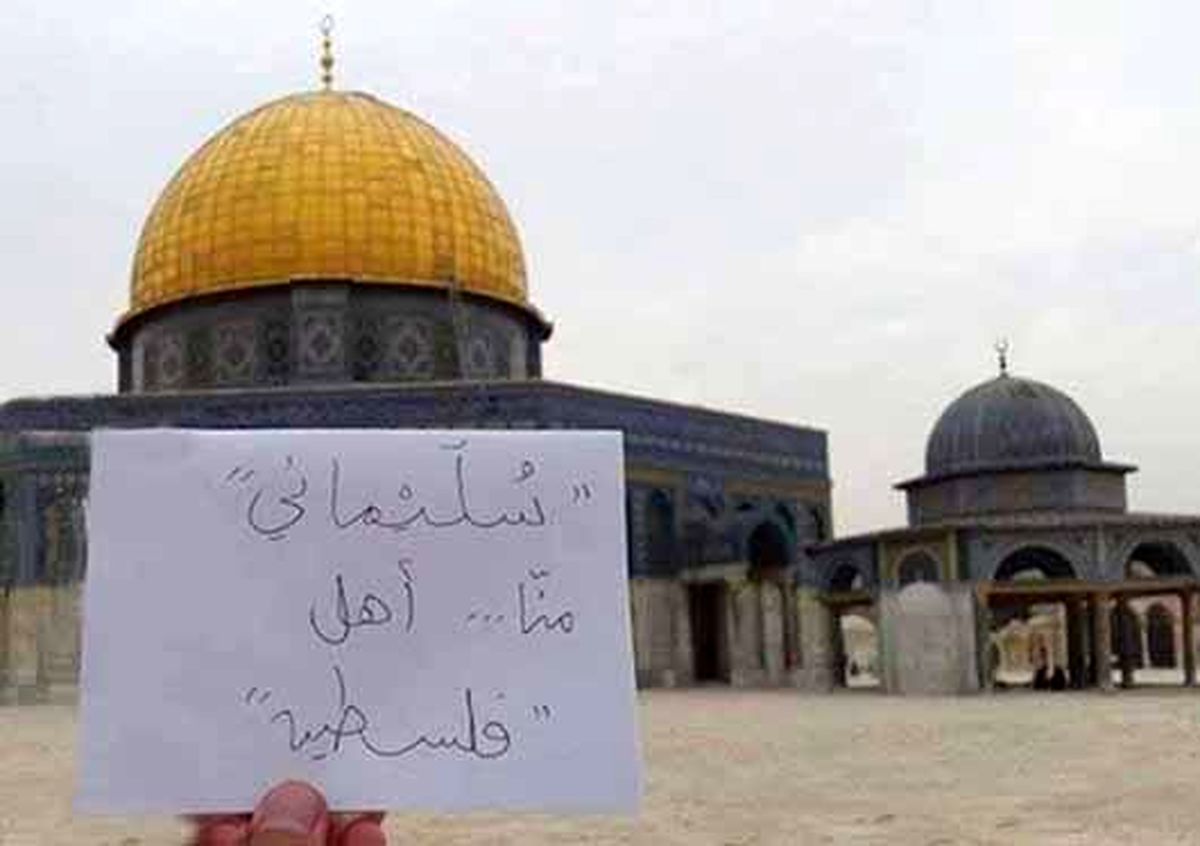 "سُلّيْماني"
منّا... أهل
"فلسطين"